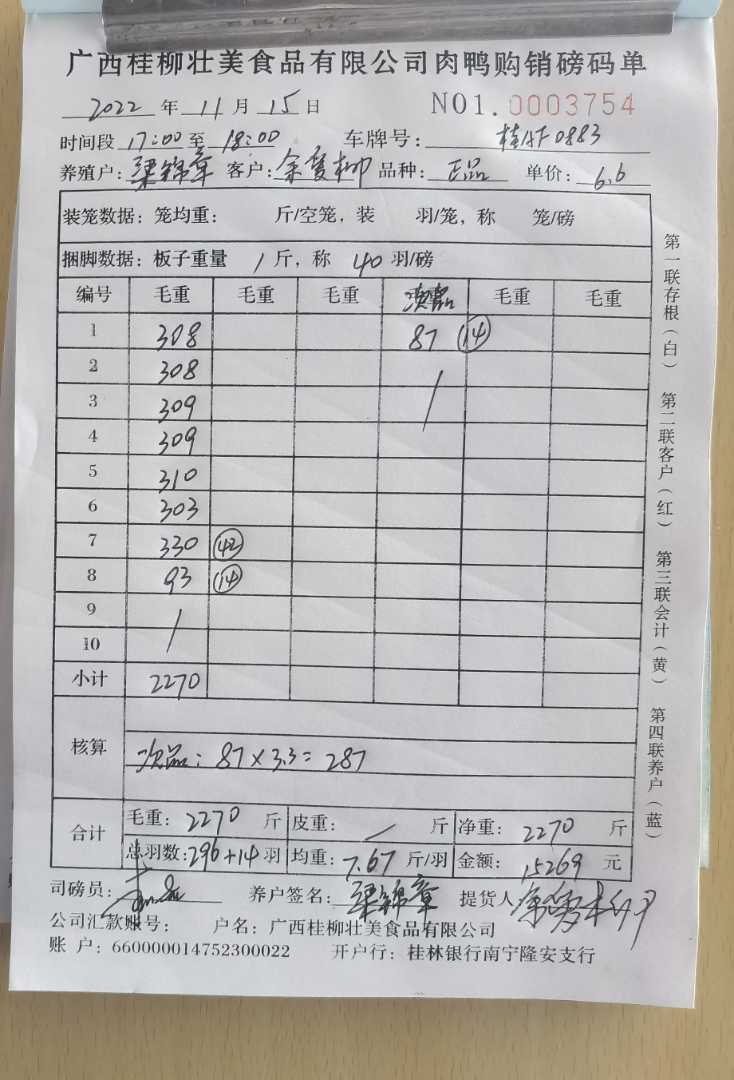 广西桂柳壮美食品有限公司肉鸭购销磅码单
2022 年 11 月 15 日 NO1.0003754
时间段 17:00 至 18:00 车牌号: 0883
养殖户: 梁锦章 客户: 余 品种: 正品 单价: 6.6
装笼数据: 笼均重: 斤/空笼, 装 羽/笼, 称 笼/磅
捆脚数据: 板子重量 1 斤, 称 40 羽/磅
编号 毛重 毛重 毛重 次品 毛重 毛重
1 308 87 14
2 308
3 309
4 309
5 310
6 303
7 330 42
8 93 14
9
10
小计 2270
核算 次品: 87×3.3=287
合计 毛重: 2270 斤 皮重: 斤 净重: 2270 斤
总羽数: 296+14 羽 均重: 7.67 斤/羽 金额: 15269 元
司磅员: 养户签名: 梁锦章 提货人
公司汇款账号: 户名: 广西桂柳壮美食品有限公司
账 户: 660000014752300022 开户行: 桂林银行南宁隆安支行
第一联存根(白) 第二联客户(红) 第三联会计(黄) 第四联养户(蓝)